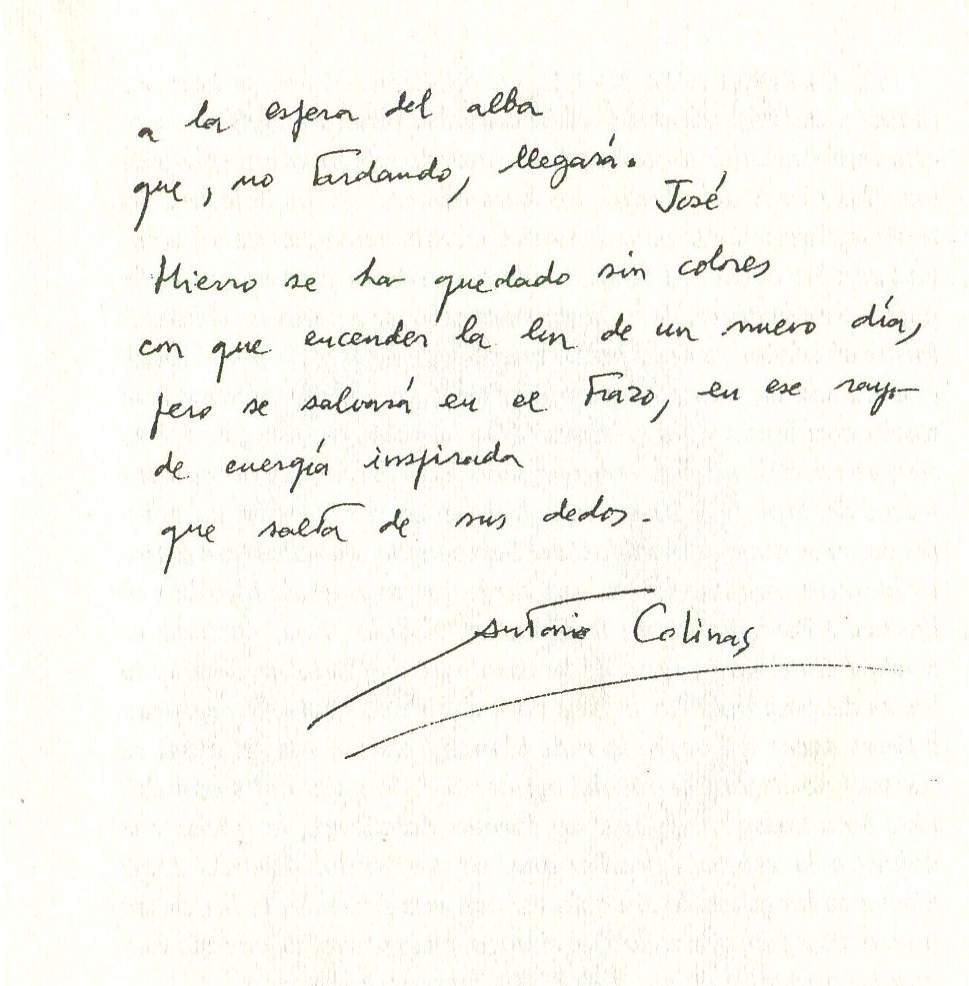 a la esfera del alba
que, no tardando, llegará.
José
Hierro se ha quedado sin colores
con que encender la luz de un nuevo día,
pero se salvará en el trazo, en ese rayo
de energía inspirada
que salta de sus dedos.
Antonio Colinas